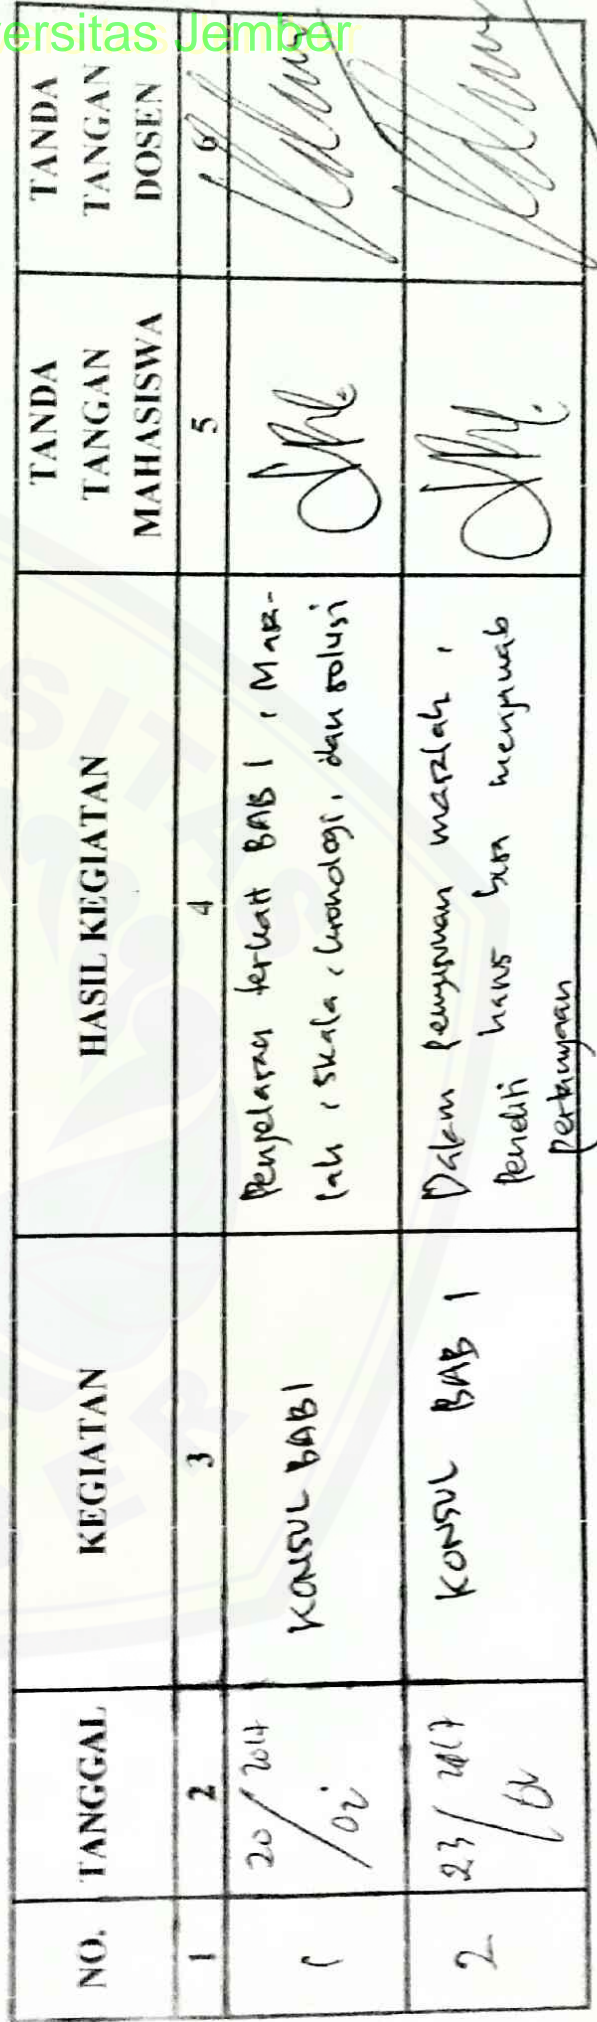 Universitas Jember
NO. TANGGAL KEGIATAN HASIL KEGIATAN TANDA TANGAN MAHASISWA TANDA TANGAN DOSEN
1 2 3 4 5 6
1 20/2017 KONSUL BAB 1 Penjelasan terkait BAB 1, Masa-
lah, skala, kronologi, dan solusi
2 23/2017 KONSUL BAB 1 Dalam penyusunan masalah,
Peneliti harus bisa menjawab
Pertanyaan